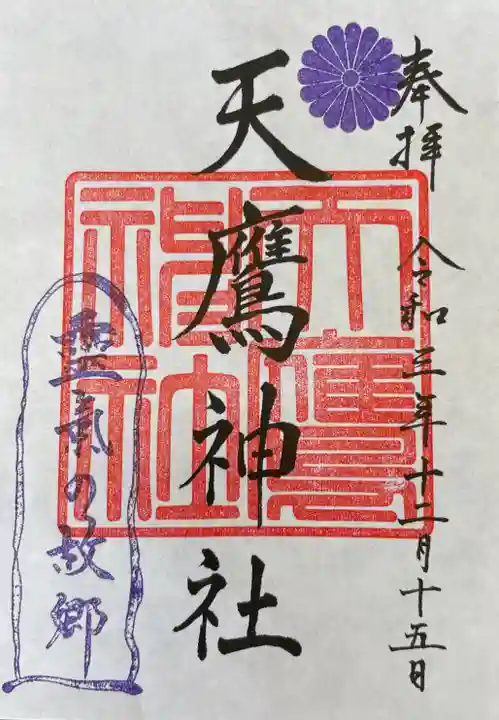 奉拝
令和三年十二月十五日
天鷹神社
天鷹神社
霊氣の故郷